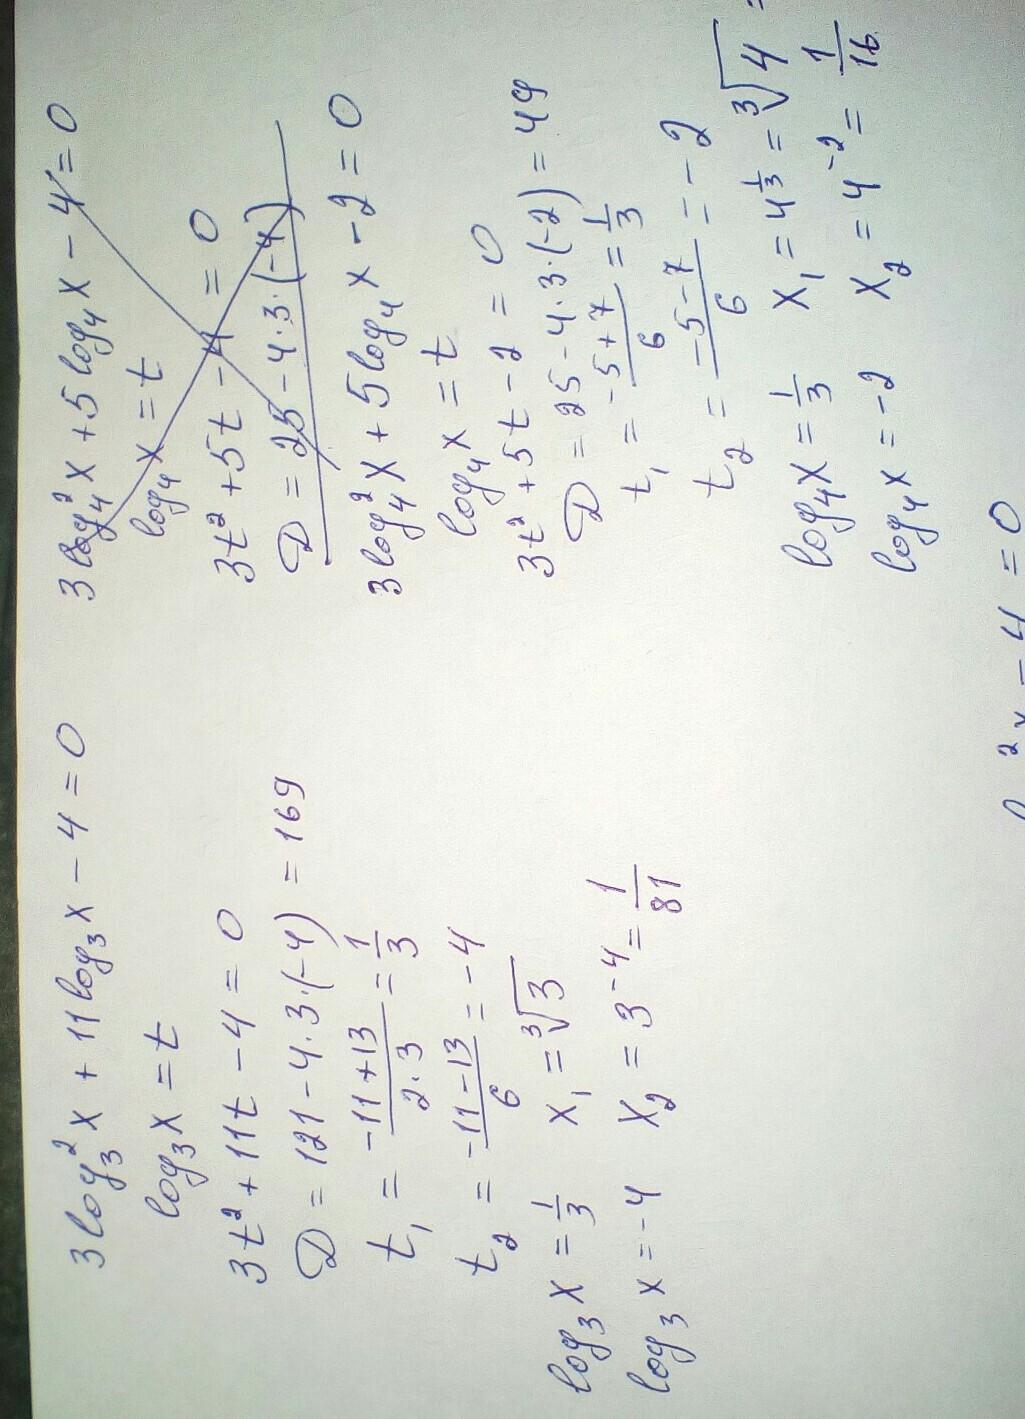 3log₃²x + 11log₃x − 4 = 0
log₃x = t
3t² + 11t − 4 = 0
D = 121 − 4·3·(−4) = 169
t₁ = (−11+13)/(2·3) = 1/3
t₂ = (−11−13)/6 = −4
log₃x = 1/3 x₁ = ³√3
log₃x = −4 x₂ = 3⁻⁴ = 1/81
3log₄²x + 5log₄x − 4 = 0
log₄x = t
3t² + 5t − 4 = 0
D = 25 − 4·3·(−4)
3log₄²x + 5log₄x − 2 = 0
log₄x = t
3t² + 5t − 2 = 0
D = 25 − 4·3·(−2) = 49
t₁ = (−5+7)/6 = 1/3
t₂ = (−5−7)/6 = −2
log₄x = 1/3 x₁ = 4^(1/3) = ³√4 =
log₄x = −2 x₂ = 4⁻² = 1/16
²x − 4 = 0